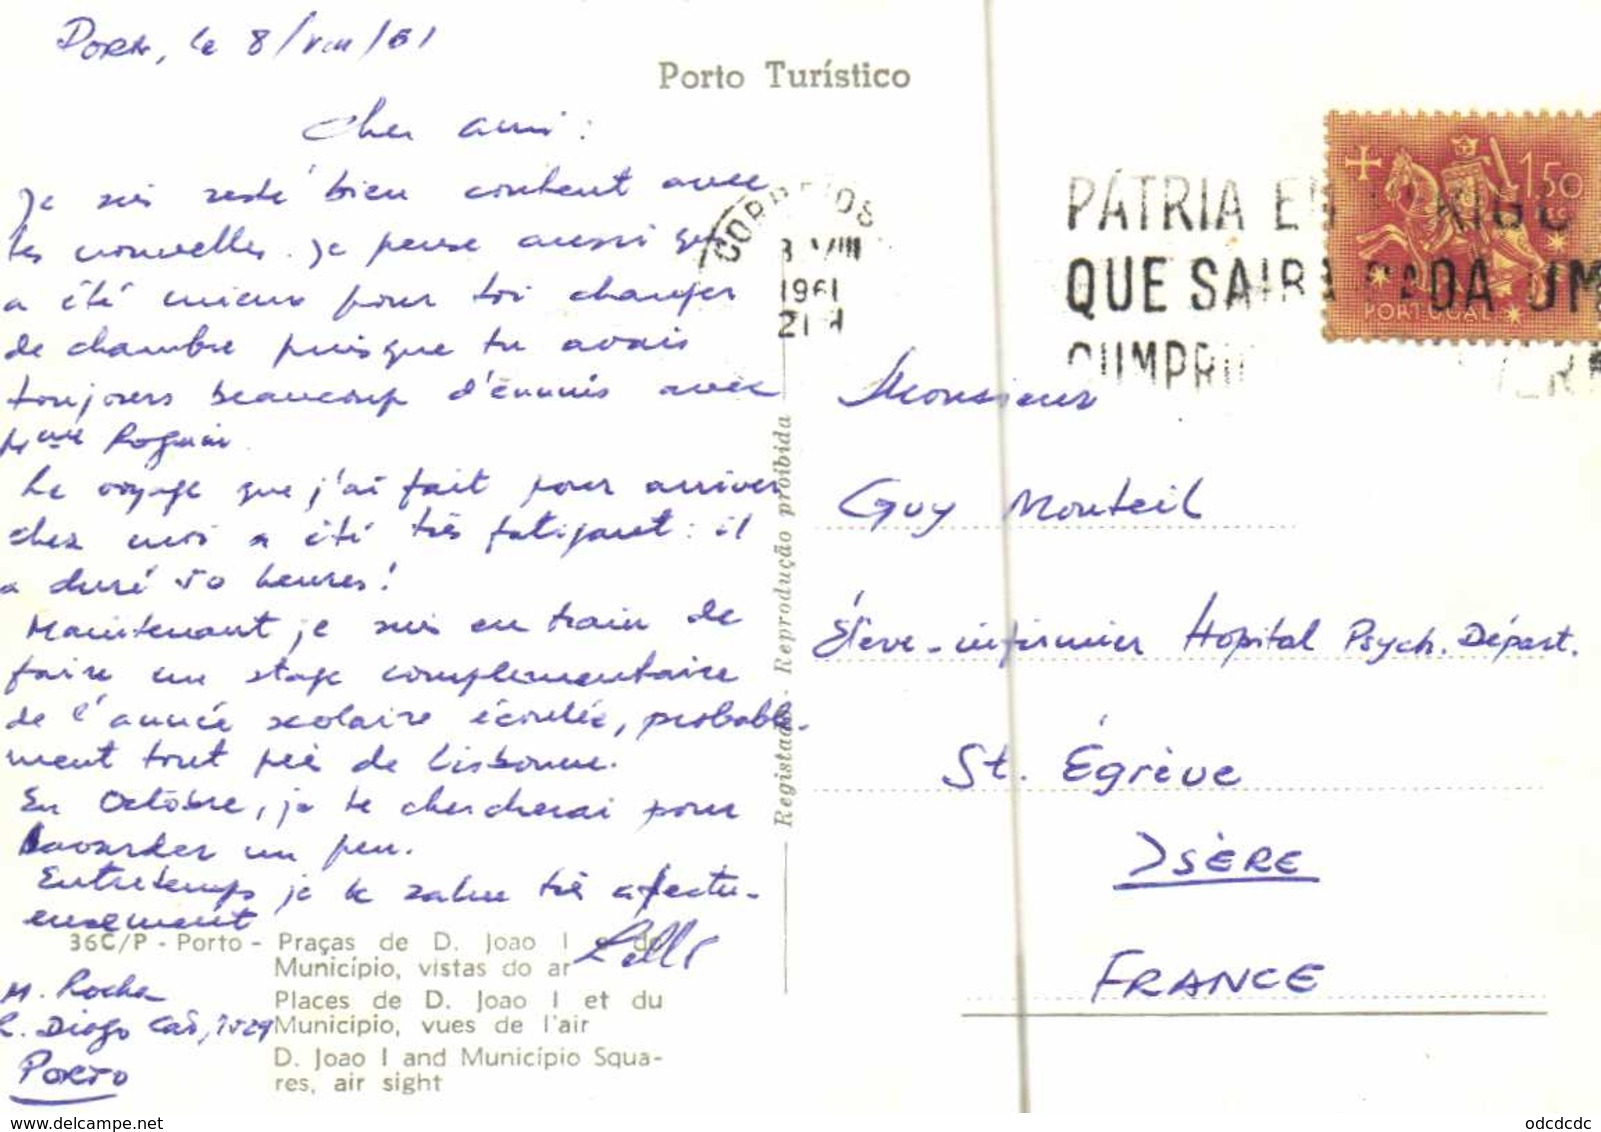 Porto, le 8/VIII/61
Porto Turístico
Cher ami:
Je suis resté bien content avec
tes nouvelles. Je pense aussi que
a été mieux pour toi changer
de chambre puisque tu avais
toujours beaucoup d'énnuis avec
Mme Roguin.
Le voyage que j'ai fait pour arriver
chez moi a été très fatigant: il
a duré 50 heures!
Maintenant je suis en train de
faire un stage complementaire
de l'année scolaire écoulée, probable-
ment tout près de Lisbonne.
En Octobre, je te chercherai pour
bavarder un peu.
Entretemps je te salue très afectu-
eusement
36C/P - Porto - Praças de D. Joao I e do
Município, vistas do ar
Places de D. Joao I et du
Município, vues de l'air
D. Joao I and Município Squa-
res, air sight
M. Rocha
R. Diogo Cão, 1029
Porto
Registado - Reprodução proibida
CORREIOS
8 VIII
1961
21 H
PÁTRIA
QUE SAIBA CADA UM
CUMPRIR
1$50
PORTUGAL
Monsieur
Guy Monteil
Élève-infirmier Hopital Psych. Départ.
St. Égrève
ISÈRE
FRANCE
www.delcampe.net
odcdcdc